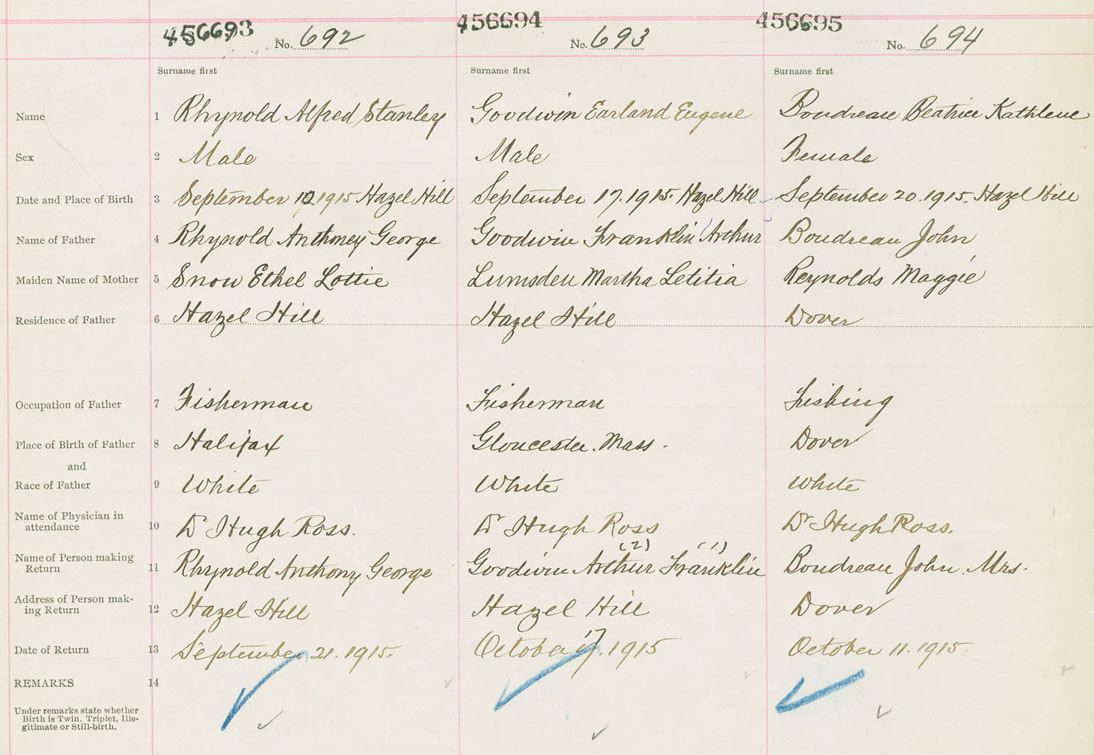 456693 No. 692 456694 No. 693 456695 No. 694
Surname first Surname first Surname first
Name 1 Rhynold Alfred Stanley Goodwin Earland Eugene Boudreau Beatrice Kathlene
Sex 2 Male Male Female
Date and Place of Birth 3 September 12, 1915 Hazel Hill September 17, 1915. Hazel Hill September 20. 1915. Hazel Hill
Name of Father 4 Rhynold Anthoney George Goodwin Franklin Arthur Boudreau John
Maiden Name of Mother 5 Snow Ethel Lottie Lumsden Martha Letitia Reynolds Maggie
Residence of Father 6 Hazel Hill Hazel Hill Dover
Occupation of Father 7 Fisherman Fisherman Fishing
Place of Birth of Father 8 Halifax Gloucester. Mass. Dover
and
Race of Father 9 White White White
Name of Physician in
attendance 10 Dr Hugh Ross. Dr Hugh Ross Dr Hugh Ross.
(2) (1)
Name of Person making
Return 11 Rhynold Anthony George Goodwin Arthur Franklin Boudreau John. Mrs.
Address of Person mak-
ing Return 12 Hazel Hill Hazel Hill Dover
Date of Return 13 September 21. 1915. October 17, 1915 October 11. 1915.
REMARKS 14
Under remarks state whether
Birth is Twin. Triplet, Ille-
gitimate or Still-birth.